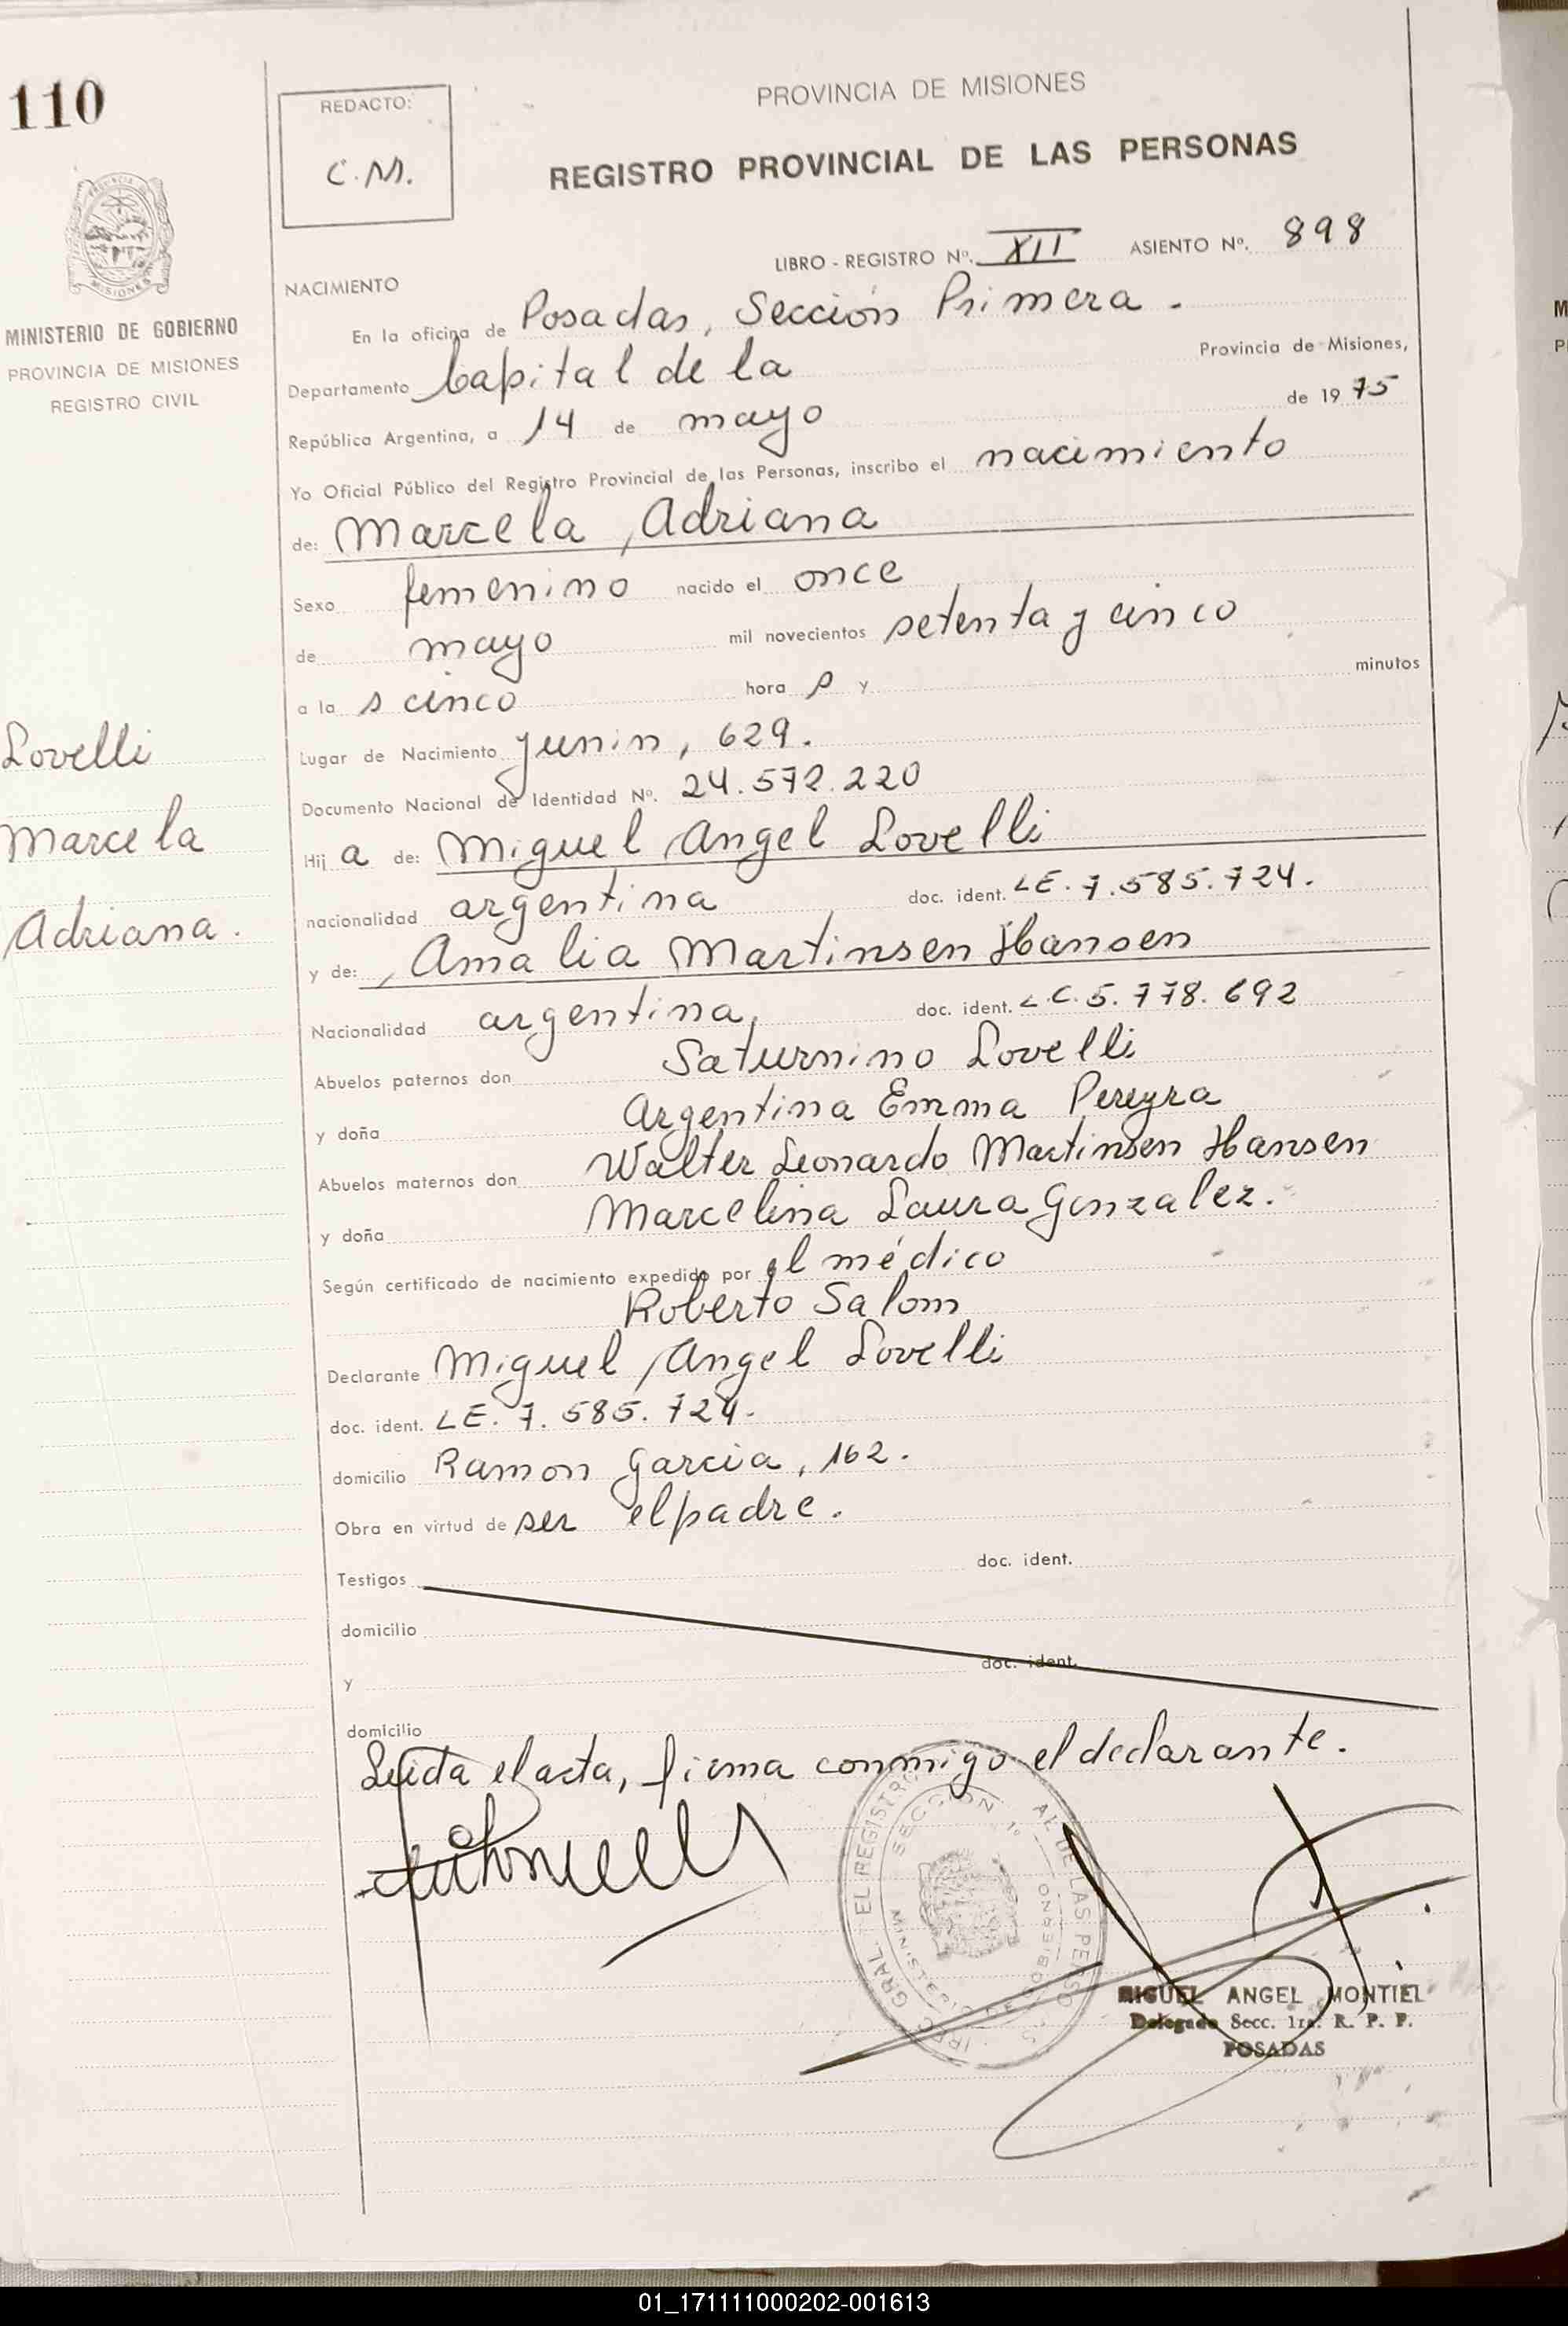 110
REDACTO:
C.M.
PROVINCIA DE MISIONES
REGISTRO PROVINCIAL DE LAS PERSONAS
LIBRO - REGISTRO Nº. XII ASIENTO Nº. 898
MINISTERIO DE GOBIERNO
PROVINCIA DE MISIONES
REGISTRO CIVIL
NACIMIENTO
En la oficina de Posadas, Sección Primera.
Departamento Capital de la Provincia de Misiones,
República Argentina, a 14 de mayo de 1975
Yo Oficial Público del Registro Provincial de las Personas, inscribo el nacimiento
de: Marcela Adriana
Sexo femenino nacido el once
de mayo mil novecientos setenta y cinco
a la s cinco hora s y minutos
Lugar de Nacimiento Junin, 629.
Documento Nacional de Identidad Nº. 24.572.220
Hij a de: Miguel Angel Lovelli
nacionalidad argentina doc. ident. LE. 7.585.724.
y de: Amalia Martinsen Hansen
Nacionalidad argentina, doc. ident. L.C. 5.778.692
Abuelos paternos don Saturnino Lovelli
y doña Argentina Emma Pereyra
Abuelos maternos don Walter Leonardo Martinsen Hansen
y doña Marcelina Laura Gonzalez.
Según certificado de nacimiento expedido por el médico
Roberto Salom
Declarante Miguel Angel Lovelli
doc. ident. LE. 7.585.724.
domicilio Ramon Garcia, 162.
Obra en virtud de ser el padre.
Testigos doc. ident.
domicilio
y doc. ident.
domicilio
Leida el acta, firma conmigo el declarante.
Lovelli
Marcela
Adriana.
SECCION 1º
MINISTERIO DE GOBIERNO
MIGUEL ANGEL MONTIEL
Delegado Secc. 1ra. R. P. P.
POSADAS
01_171111000202-001613